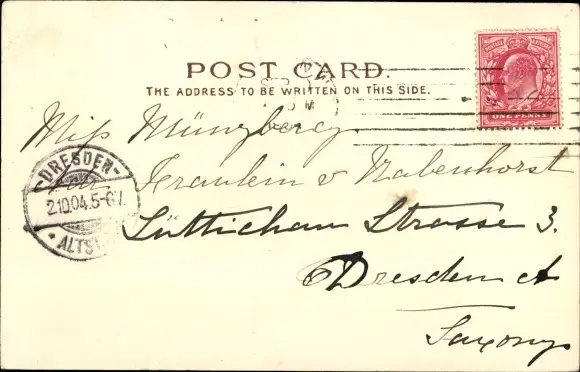 POST CARD.
THE ADDRESS TO BE WRITTEN ON THIS SIDE.
POSTAGE REVENUE
ONE PENNY
Miss Münzberg
Fraulein v Nabenhorst
Lüttichau Strasse 3.
Dresden A
Saxony
DRESDEN-
2.10.04.5-6V.
* ALTST